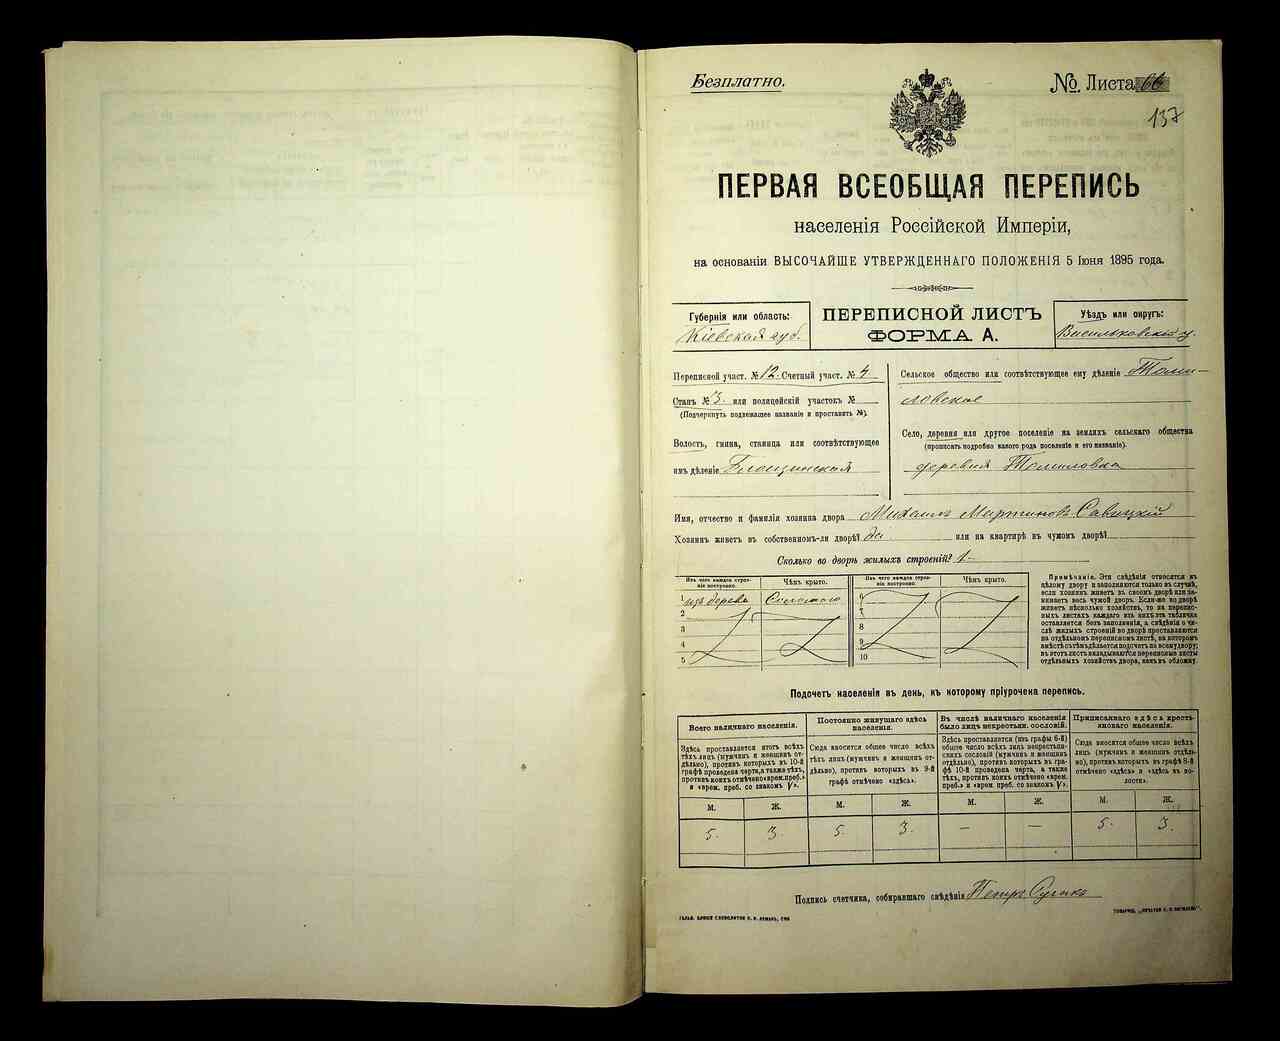 Безплатно.
№ Листа 66
137
ПЕРВАЯ ВСЕОБЩАЯ ПЕРЕПИСЬ
населенія Россійской Имперіи,
на основаніи ВЫСОЧАЙШЕ УТВЕРЖДЕННАГО ПОЛОЖЕНІЯ 5 Іюня 1895 года.
Губернія или область:
Кіевская губ.
ПЕРЕПИСНОЙ ЛИСТЪ
ФОРМА А.
Уѣздъ или округъ:
Васильковскій у.
Переписной участ. № 12. Счетный участ. № 4.
Станъ № 3. или полицейскій участокъ №
(Подчеркнуть подлежащее названіе и проставить №).
Волость, гмина, станица или соотвѣтствующее
имъ дѣленіе Блощинская
Сельское общество или соотвѣтствующее ему дѣленіе Томи-
ловское
Село, деревня или другое поселеніе на земляхъ сельскаго общества
(прописать подробно какого рода поселеніе и его названіе).
деревня Томиловка
Имя, отчество и фамилія хозяина двора Михаилъ Мартиновъ Савицкій
Хозяинъ живетъ въ собственномъ-ли дворѣ? да или на квартирѣ въ чужомъ дворѣ?
Сколько во дворѣ жилыхъ строеній? 1
Изъ чего каждое строеніе построено.
Чѣмъ крыто.
Изъ чего каждое строеніе построено.
Чѣмъ крыто.
1 изъ дерева Соломою
2
3
4
5
6
7
8
9
10
Примѣчаніе. Эти свѣдѣнія относятся къ
цѣлому двору и заполняются только въ случаѣ,
если хозяинъ живетъ въ своемъ дворѣ или за-
нимаетъ весь чужой дворъ. Если-же во дворѣ
живетъ нѣсколько хозяйствъ, то на перепис-
ныхъ листахъ каждаго изъ нихъ эта табличка
оставляется безъ заполненія, а свѣдѣнія о чи-
слѣ жилыхъ строеній во дворѣ проставляются
на отдѣльномъ переписномъ листѣ, на которомъ
вмѣстѣ съ тѣмъ дѣлается подсчетъ по всему двору;
въ этотъ листъ вкладываются переписные листы
отдѣльныхъ хозяйствъ двора, какъ въ обложку.
Подсчетъ населенія въ день, къ которому пріурочена перепись.
Всего наличнаго населенія.
Постоянно живущаго здѣсь населенія.
Въ числѣ наличнаго населенія было лицъ некрестьян. сословій.
Приписаннаго здѣсь крестьянскаго населенія.
Здѣсь проставляется итогъ всѣхъ
тѣхъ лицъ (мужчинъ и женщинъ от-
дѣльно), противъ которыхъ въ 10-й
графѣ проведена черта, а также тѣхъ,
противъ коихъ отмѣчено «врем. преб.»
и «врем. преб. со знакомъ V».
Сюда вносится общее число всѣхъ
тѣхъ лицъ (мужчинъ и женщинъ от-
дѣльно), противъ которыхъ въ 9-й
графѣ отмѣчено «здѣсь».
Здѣсь проставляется (изъ графы 6-й)
общее число всѣхъ лицъ некрестьян-
скихъ сословій (мужчинъ и женщинъ
отдѣльно), противъ которыхъ въ гра-
фѣ 10-й проведена черта, а также
тѣхъ, противъ коихъ отмѣчено «врем.
преб.» и «врем. преб. со знакомъ V».
Сюда вносится общее число всѣхъ
лицъ (мужчинъ и женщинъ отдѣль-
но), противъ которыхъ въ графѣ 8-й
отмѣчено «здѣсь» и «здѣсь въ во-
лости».
М. Ж. М. Ж. М. Ж. М. Ж.
5. 3. 5. 3. — — 5. 3.
Подпись счетчика, собиравшаго свѣдѣнія Петръ